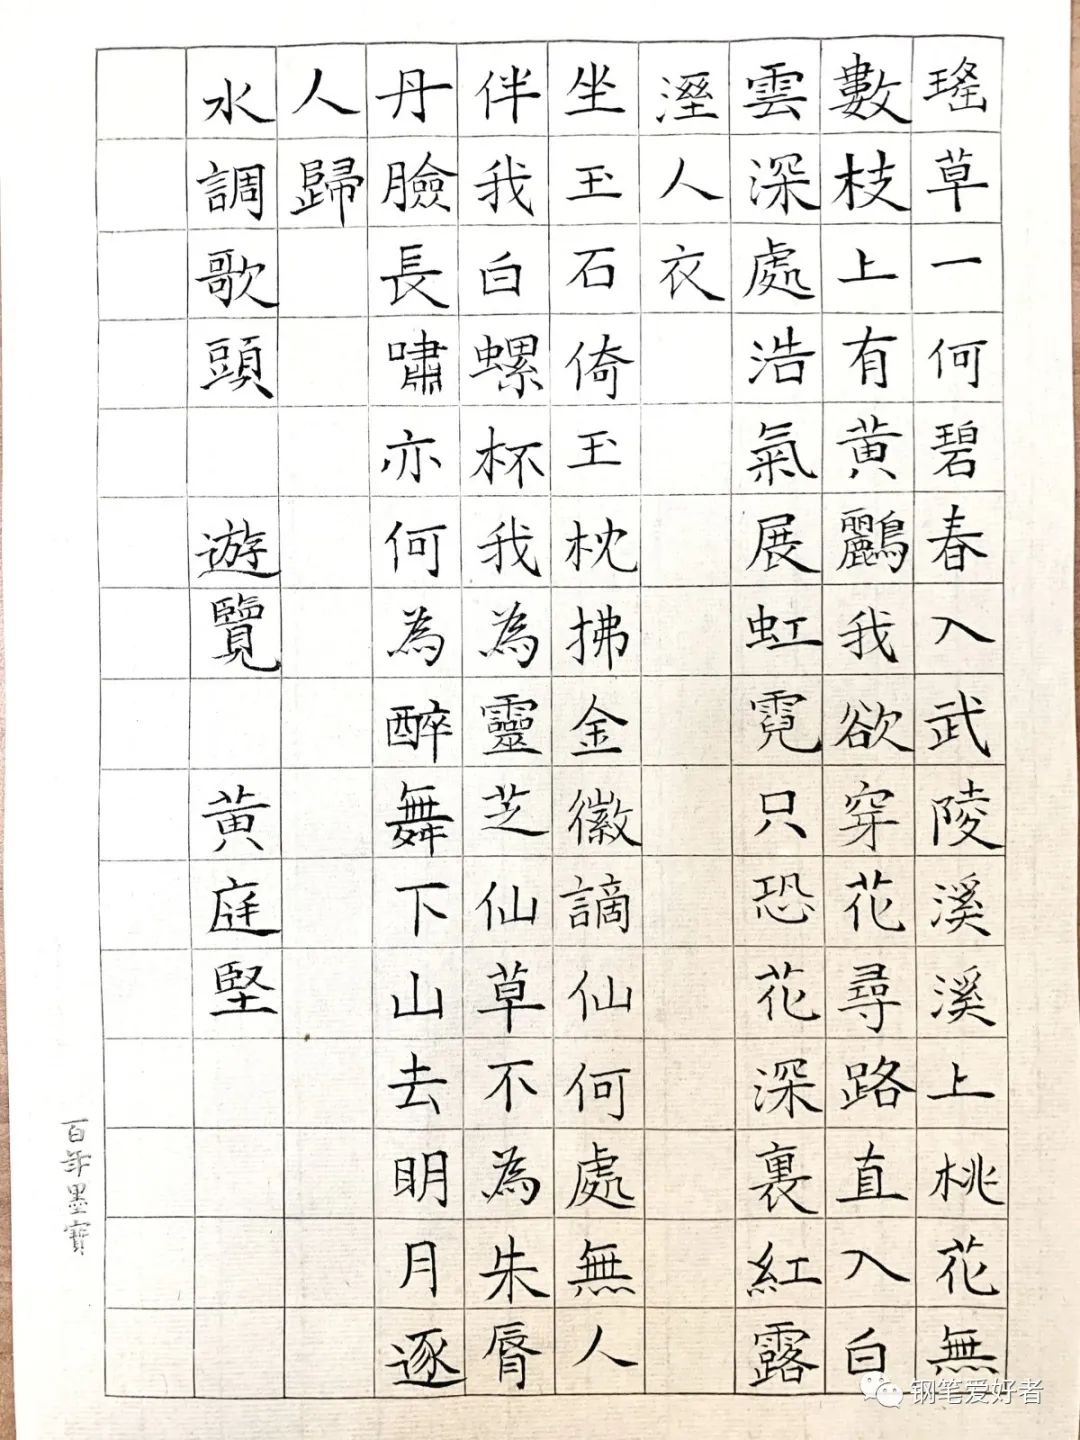 瑤草一何碧春入武陵溪溪上桃花無
數枝上有黃鸝我欲穿花尋路直入白
雲深處浩氣展虹霓只恐花深裏紅露
溼人衣
坐玉石倚玉枕拂金徽謫仙何處無人
伴我白螺杯我為靈芝仙草不為朱脣
丹臉長嘯亦何為醉舞下山去明月逐
人歸
水調歌頭 遊覽 黃庭堅
百年墨寶
钢笔爱好者